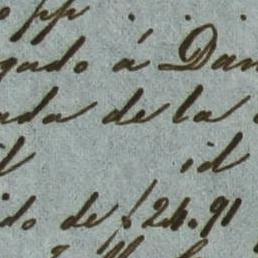 pp
gado á Dan
ada de la
id
ido de $24.91